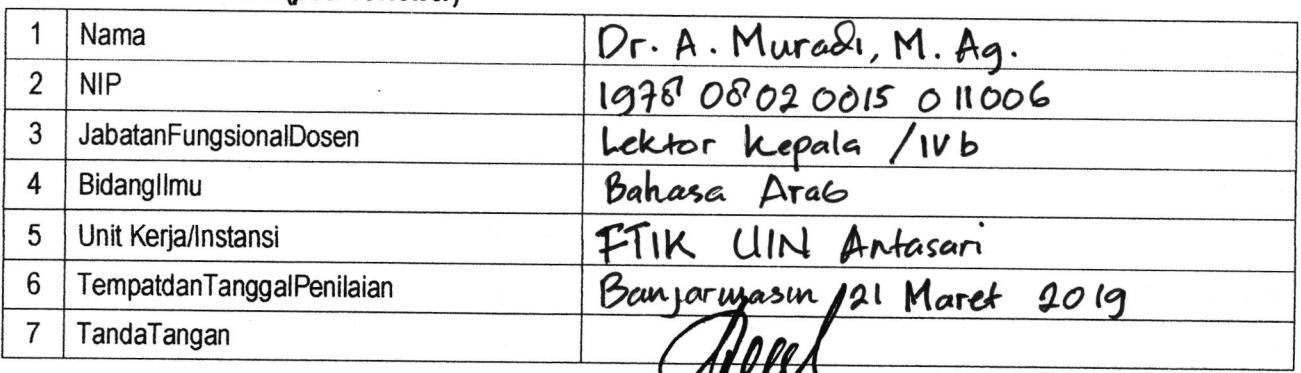 1 Nama Dr. A. Muradi, M. Ag.
2 NIP 19780802 0015 011006
3 JabatanFungsionalDosen Lektor Kepala /IVb
4 BidangIlmu Bahasa Arab
5 Unit Kerja/Instansi FTIK UIN Antasari
6 TempatdanTanggalPenilaian Banjarmasin /21 Maret 2019
7 TandaTangan